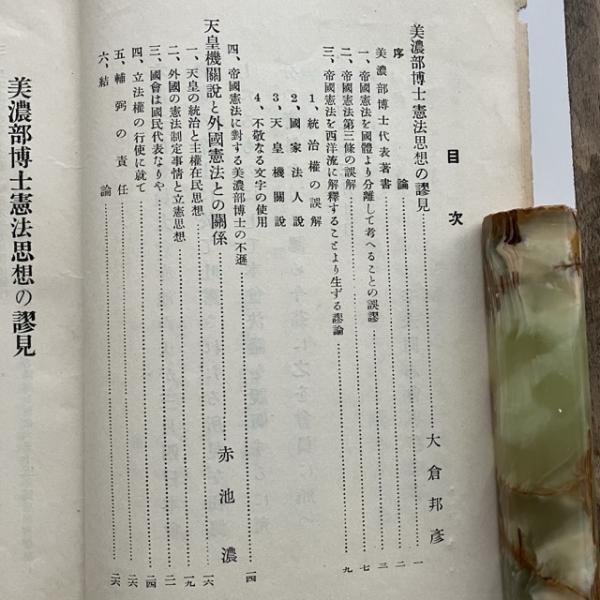 目次
美濃部博士憲法思想の謬見……大倉邦彦…一
序論……二
美濃部博士代表著書……三
一、帝國憲法を國體より分離して考へることの誤謬……七
二、帝國憲法第三條の誤解……九
三、帝國憲法を西洋流に解釋することより生ずる謬論
1、統治權の誤解
2、國家法人說
3、天皇機關說
4、不敬なる文字の使用
四、帝國憲法に對する美濃部博士の不遜……一四
天皇機關說と外國憲法との關係……赤池濃…一六
一、天皇の統治と主權在民思想……一九
二、外國の憲法制定事情と立憲思想……二一
三、國會は國民代表なりや……二四
四、立法權の行使に就て……二六
五、輔弼の責任
六、結論……二六
美濃部博士憲法思想の謬見